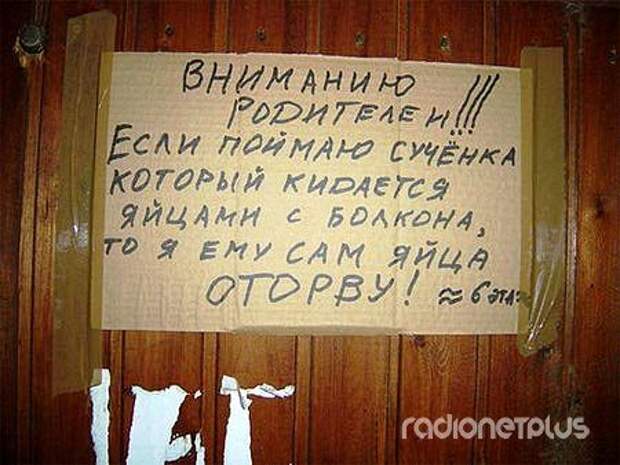 ВНИМАНИЮ
РОДИТЕЛЕЙ!!!
ЕСЛИ ПОЙМАЮ СУЧЁНКА
КОТОРЫЙ КИДАЕТСЯ
ЯЙЦАМИ С БОЛКОНА,
ТО Я ЕМУ САМ ЯЙЦА
ОТОРВУ! ≈ 6 ЭТАЖ
radionetplus